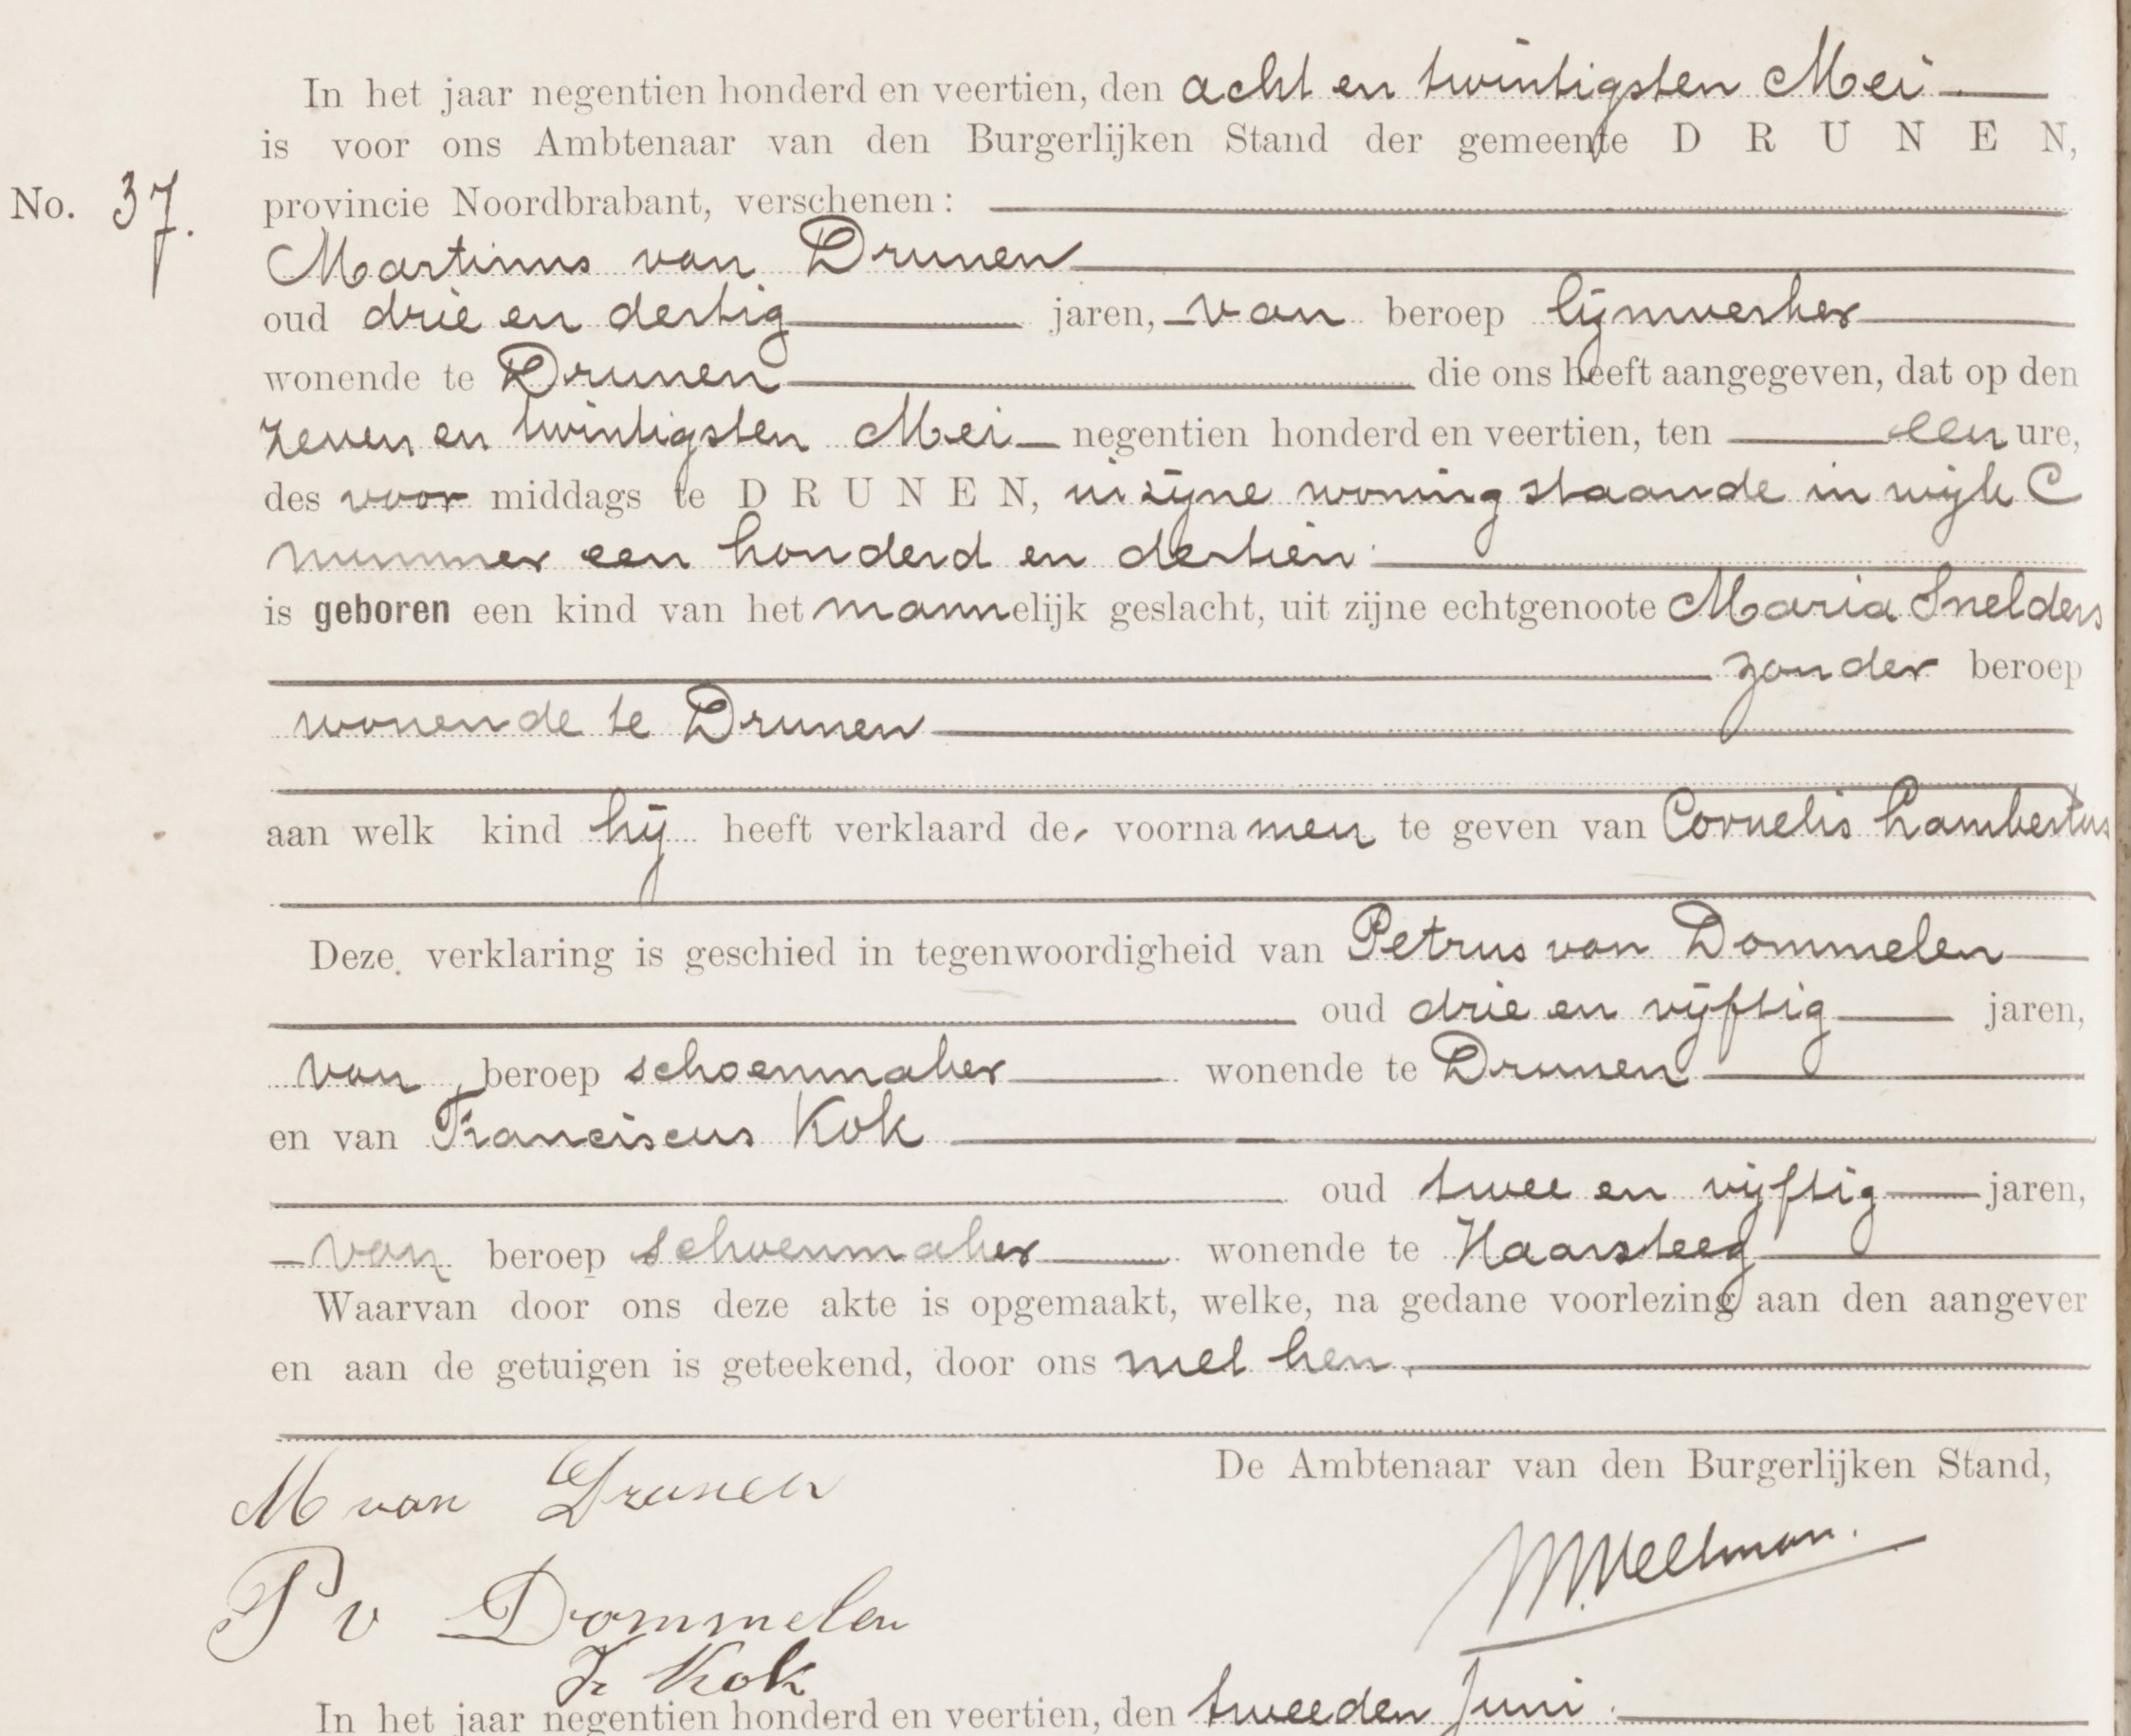 In het jaar negentien honderd en veertien, den acht en twintigsten Mei
is voor ons Ambtenaar van den Burgerlijken Stand der gemeente DRUNEN,
No. 37. provincie Noordbrabant, verschenen:
Martinus van Drunen
oud drie en dertig jaren, van beroep lijmwerker
wonende te Drunen die ons heeft aangegeven, dat op den
zeven en twintigsten Mei negentien honderd en veertien, ten een ure,
des voor middags te DRUNEN, in zijne woning staande in wijk C
nummer een honderd en dertien
is geboren een kind van het mannelijk geslacht, uit zijne echtgenoote Maria Snelders
zonder beroep
wonende te Drunen
aan welk kind hij heeft verklaard de voornamen te geven van Cornelis Lambertus
Deze verklaring is geschied in tegenwoordigheid van Petrus van Dommelen
oud drie en vijftig jaren,
van beroep schoenmaker wonende te Drunen
en van Franciscus Kok
oud twee en vijftig jaren,
van beroep schoenmaker wonende te Haarsteeg
Waarvan door ons deze akte is opgemaakt, welke, na gedane voorlezing aan den aangever
en aan de getuigen is geteekend, door ons met hen.
De Ambtenaar van den Burgerlijken Stand,
M van Drunen
P v Dommelen
F. Kok
In het jaar negentien honderd en veertien, den tweeden Juni